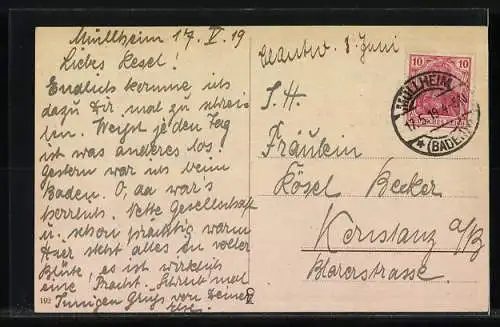 Müllheim 17. V. 19
Liebes Resel!
Endlich komme ich
dazu Dir mal zu schrei-
ben. Weißt je den Tag
ist was anderes los
Gestern war ich beim
Baden. O, da war's
herrlich. Nette Gesellschaft
u. schon prächtig warm
Hier steht alles in voller
Blüte, es ist wirklich
eine Pracht. Schreib mal
Innigen Gruß von Deiner
Else.
192
beantw. 1 Juni
S. H.
Fräulein
Rösel Becker
Konstanz a/B
Blarerstrasse.
8
10 10
MÜLLHEIM
17.5.19.
* (BADEN)